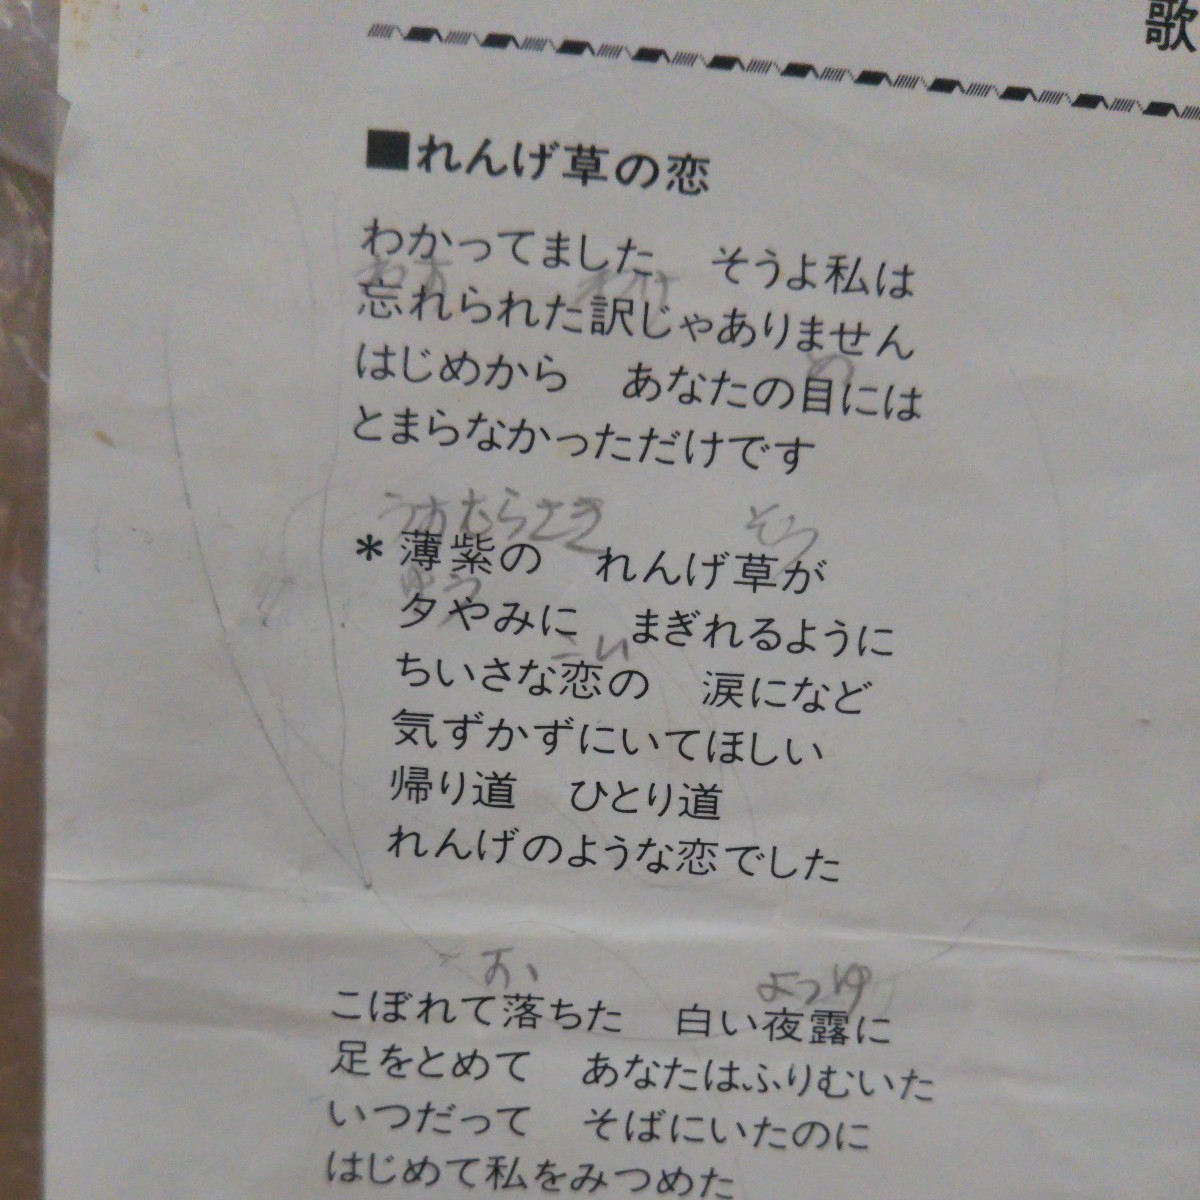 歌
■れんげ草の恋
わかってました　そうよ私は
わす　わけ
忘れられた訳じゃありません
め
はじめから　あなたの目には
とまらなかっただけです
うすむらさき　そう
＊薄紫の　れんげ草が
ゆう
夕やみに　まぎれるように
こい
ちいさな恋の　涙になど
気ずかずにいてほしい
帰り道　ひとり道
れんげのような恋でした
お　よつゆ
こぼれて落ちた　白い夜露に
足をとめて　あなたはふりむいた
いつだって　そばにいたのに
はじめて私をみつめた